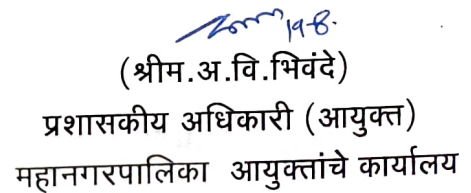 19-8.
(श्रीम.अ.वि.भिवंदे)
प्रशासकीय अधिकारी (आयुक्त)
महानगरपालिका आयुक्तांचे कार्यालय